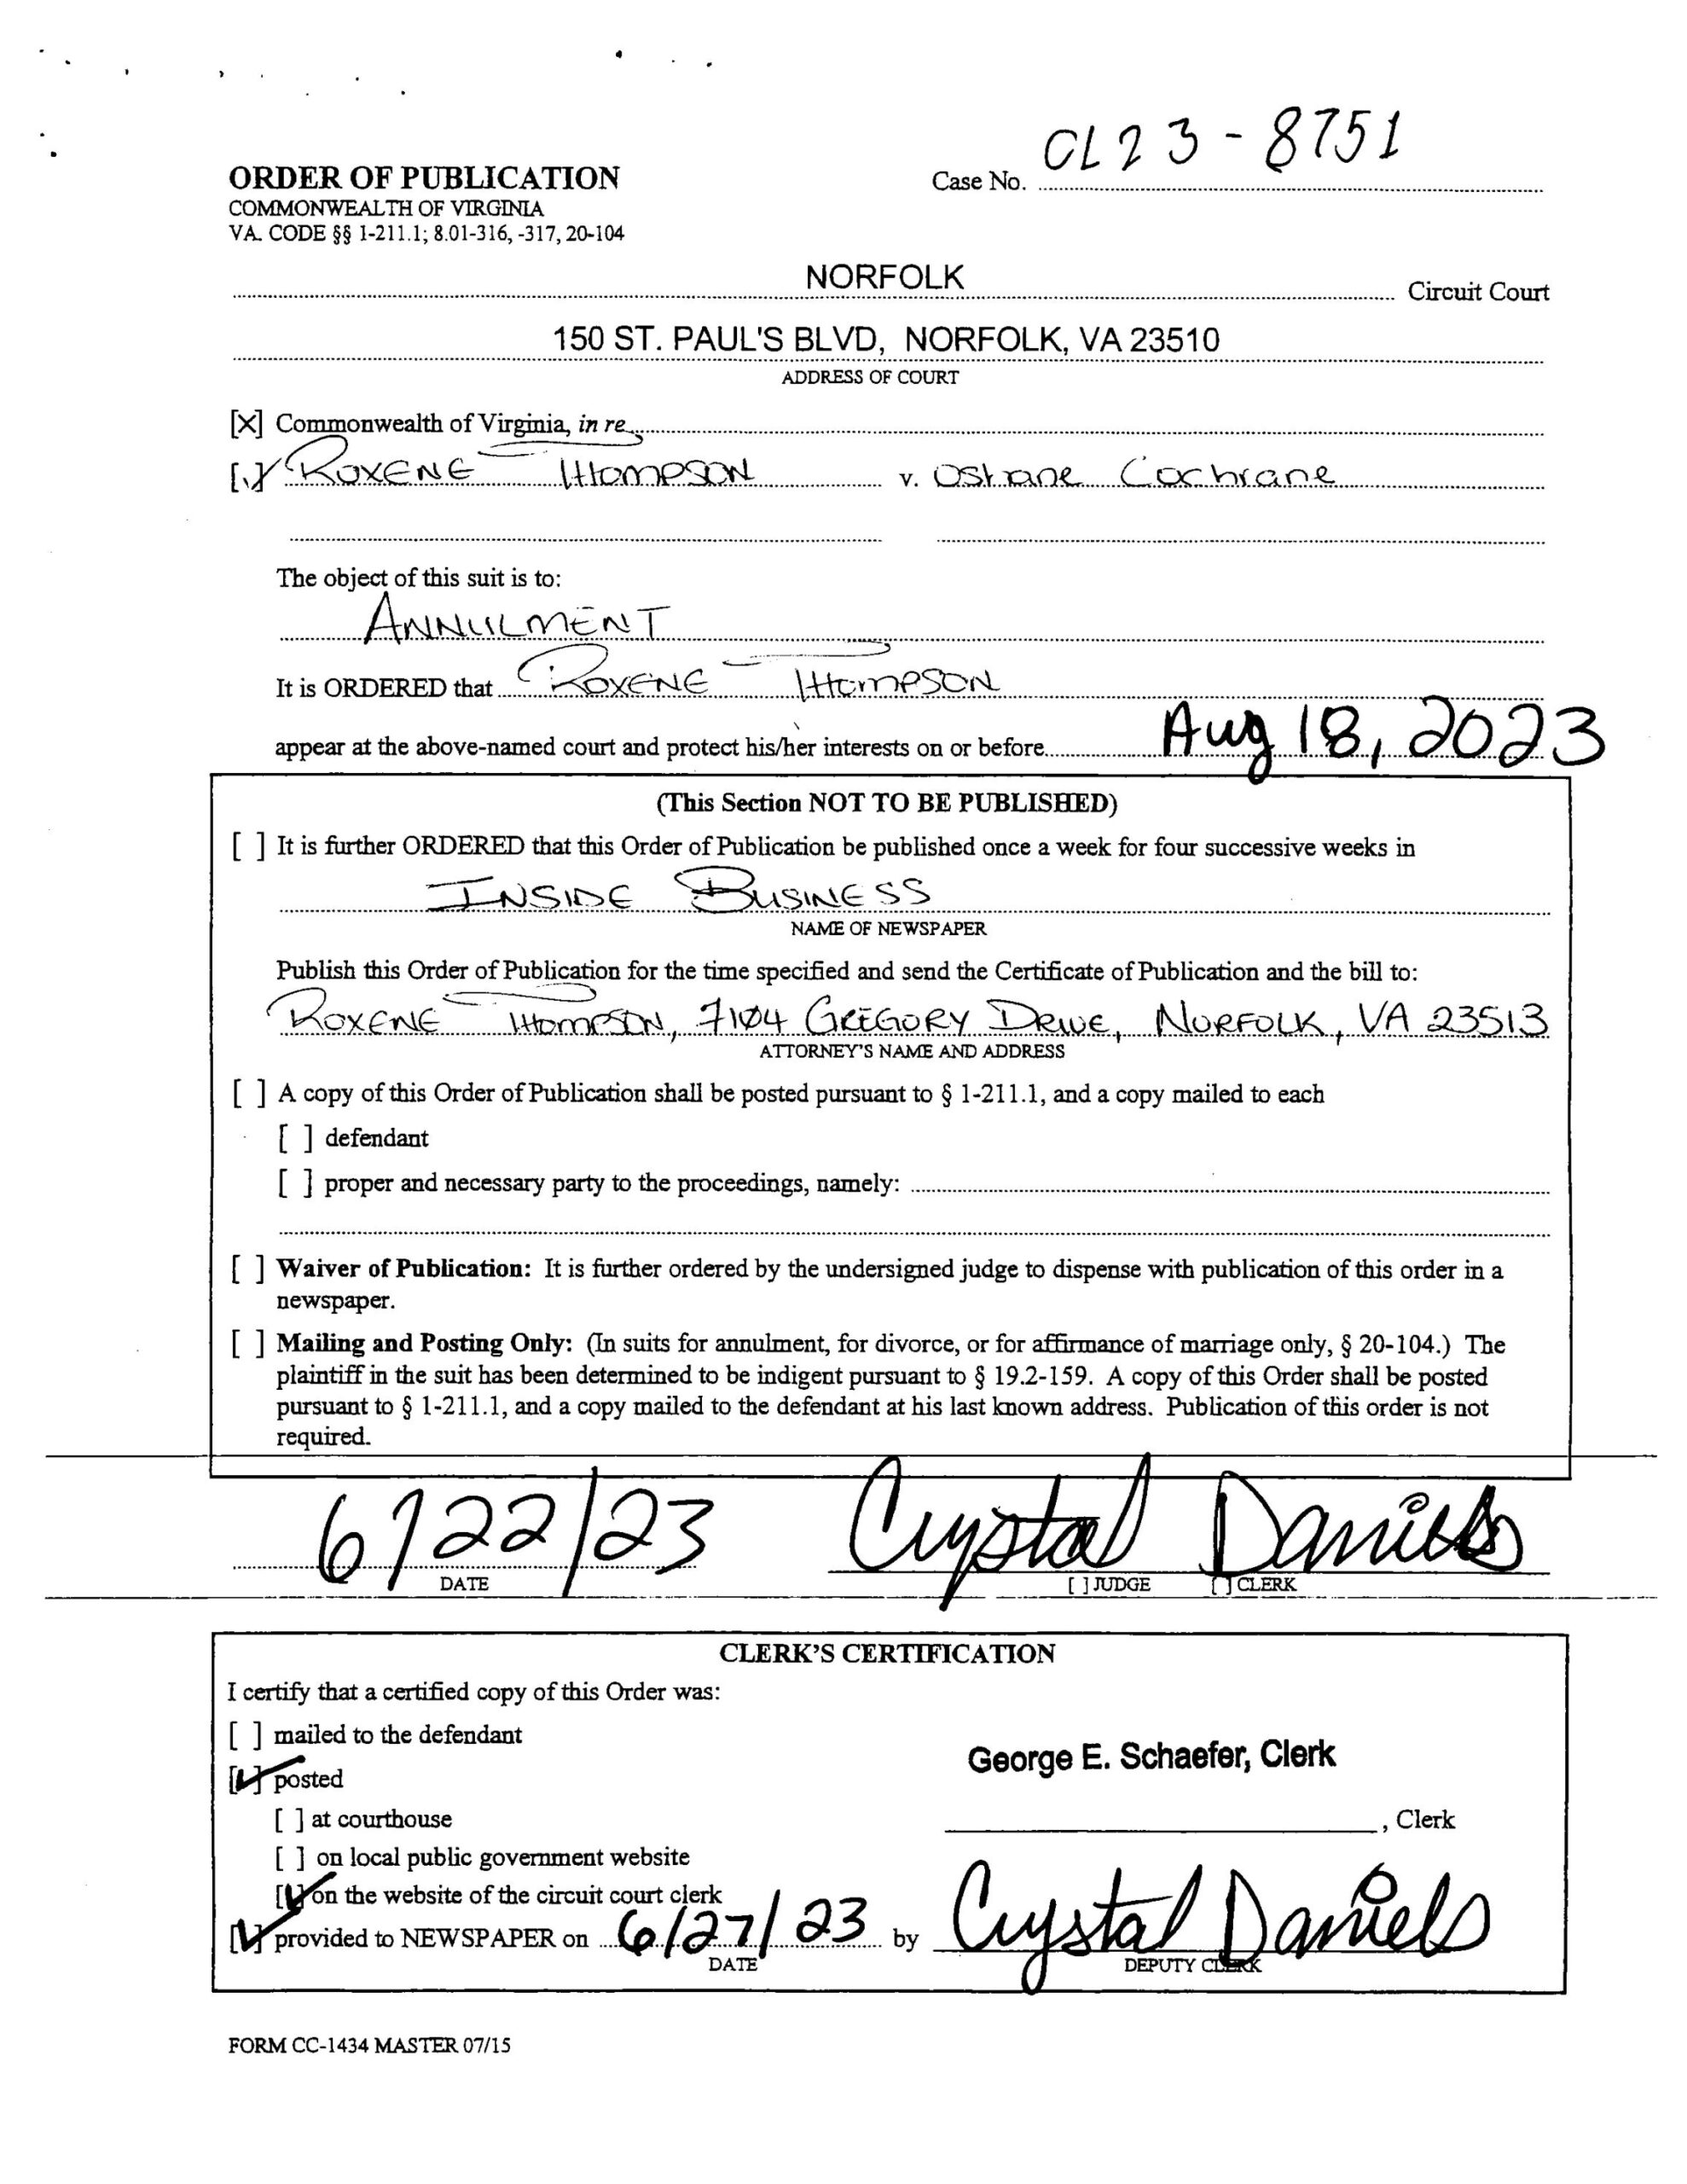 CL23-8751
ORDER OF PUBLICATION
Case No.
COMMONWEALTH OF VIRGINIA
VA. CODE §§ 1-211.1; 8.01-316, -317, 20-104
NORFOLK Circuit Court
150 ST. PAUL'S BLVD, NORFOLK, VA 23510
ADDRESS OF COURT
[X] Commonwealth of Virginia, in re
[✓] ROXENE THOMPSON v. Oshane Cochrane
The object of this suit is to:
ANNULMENT
It is ORDERED that ROXENE THOMPSON
appear at the above-named court and protect his/her interests on or before Aug 18, 2023
(This Section NOT TO BE PUBLISHED)
[ ] It is further ORDERED that this Order of Publication be published once a week for four successive weeks in
INSIDE BUSINESS
NAME OF NEWSPAPER
Publish this Order of Publication for the time specified and send the Certificate of Publication and the bill to:
ROXENE THOMPSON, 7104 GREGORY DRIVE, NORFOLK, VA 23513
ATTORNEY'S NAME AND ADDRESS
[ ] A copy of this Order of Publication shall be posted pursuant to § 1-211.1, and a copy mailed to each
[ ] defendant
[ ] proper and necessary party to the proceedings, namely:
[ ] Waiver of Publication: It is further ordered by the undersigned judge to dispense with publication of this order in a
newspaper.
[ ] Mailing and Posting Only: (In suits for annulment, for divorce, or for affirmance of marriage only, § 20-104.) The
plaintiff in the suit has been determined to be indigent pursuant to § 19.2-159. A copy of this Order shall be posted
pursuant to § 1-211.1, and a copy mailed to the defendant at his last known address. Publication of this order is not
required.
6/22/23 Crystal Daniels
DATE [ ] JUDGE [ ] CLERK
CLERK'S CERTIFICATION
I certify that a certified copy of this Order was:
[ ] mailed to the defendant
George E. Schaefer, Clerk
[✓] posted
[ ] at courthouse
, Clerk
[ ] on local public government website
[✓] on the website of the circuit court clerk
[✓] provided to NEWSPAPER on 6/27/23 by Crystal Daniels
DATE DEPUTY CLERK
FORM CC-1434 MASTER 07/15